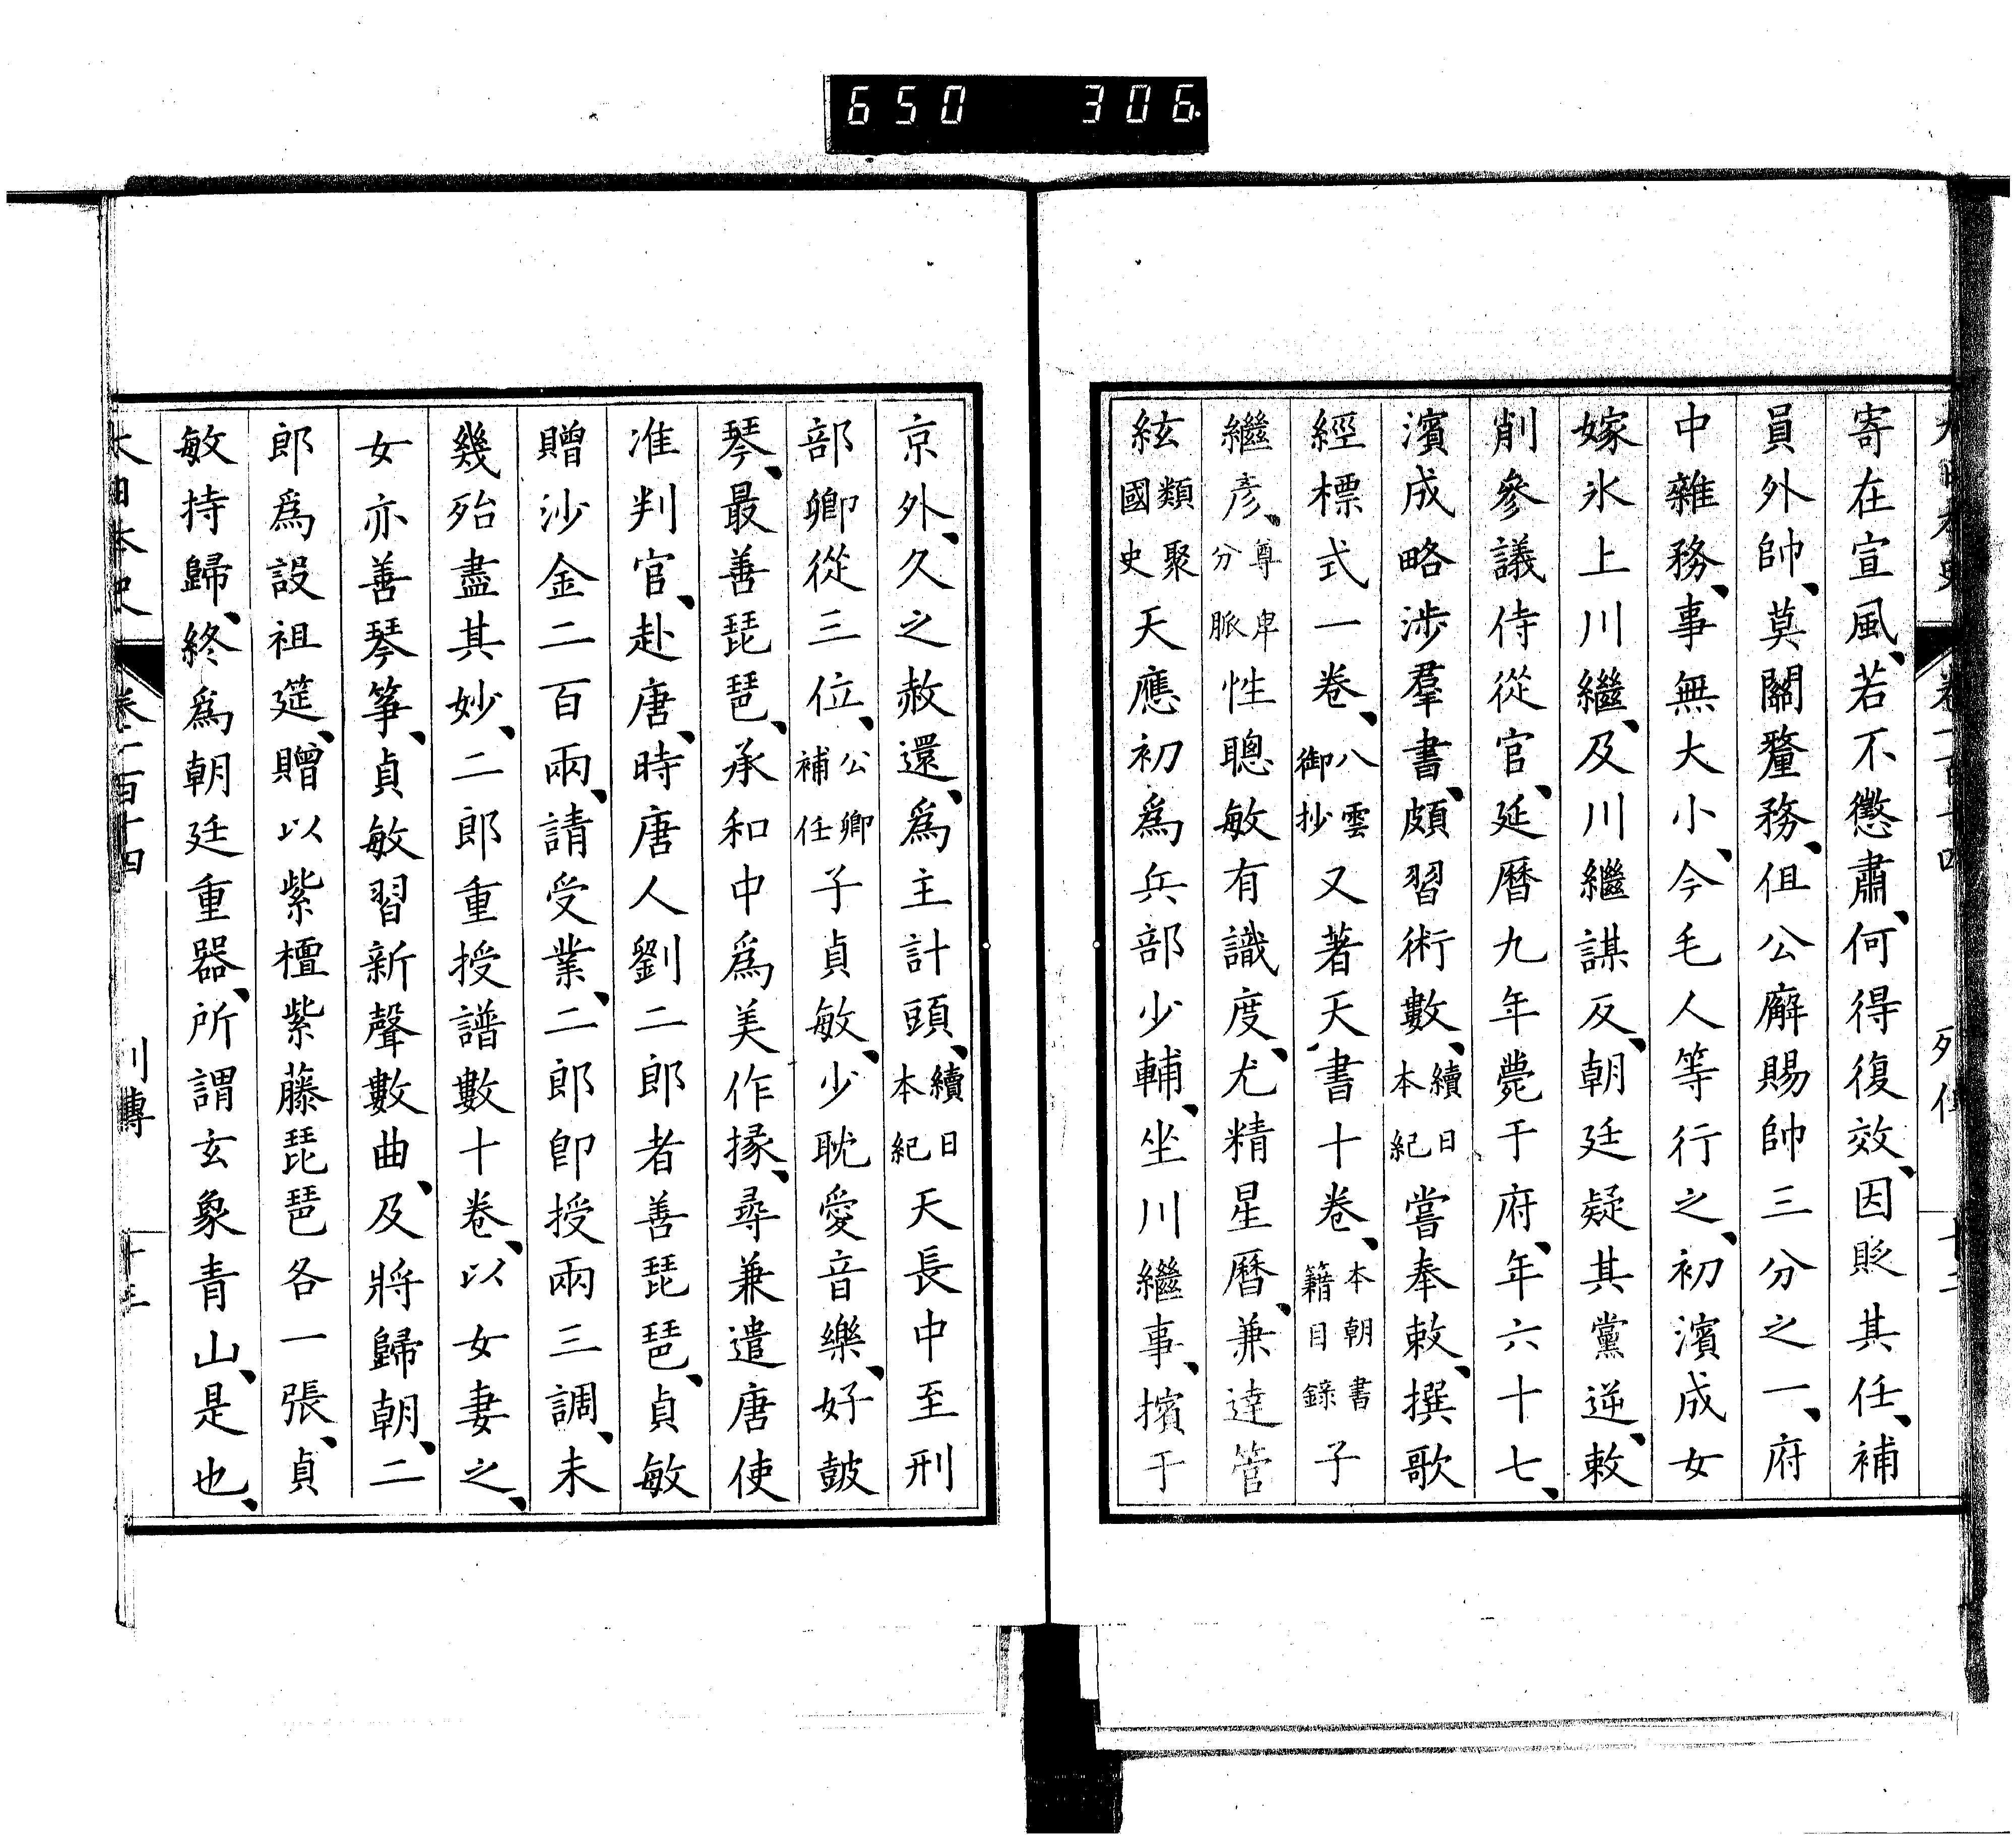 650 306
寄在宣風、若不懲肅、何得復效、因貶其任、補
員外帥、莫關釐務、但公廨賜帥三分之一、府
中雜務、事無大小、今毛人等行之、初濱成女
嫁氷上川繼、及川繼謀反、朝廷疑其黨逆、敕
削參議侍從官、延曆九年薨于府、年六十七、
濱成略渉羣書、頗習術數、續日本紀嘗奉敕、撰歌
經標式一卷、八雲御抄又著天書十卷、本朝書籍目錄子
繼彥、尊卑分脈性聰敏有識度、尤精星曆、兼達管
絃類聚國史天應初爲兵部少輔、坐川繼事、擯于
京外、久之赦還、爲主計頭、續日本紀天長中至刑
部卿從三位、公卿補任子貞敏、少耽愛音樂、好鼓
琴、最善琵琶、承和中爲美作掾、尋兼遣唐使
准判官、赴唐、時唐人劉二郎者善琵琶、貞敏
贈沙金二百兩、請受業、二郎卽授兩三調、未
幾殆盡其妙、二郎重授譜數十卷、以女妻之、
女亦善琴箏、貞敏習新聲數曲、及將歸朝、二
郎爲設祖筵、贈以紫檀紫藤琵琶各一張、貞
敏持歸、終爲朝廷重器、所謂玄象青山、是也、
大日本史 卷一百十四 列傳 十三